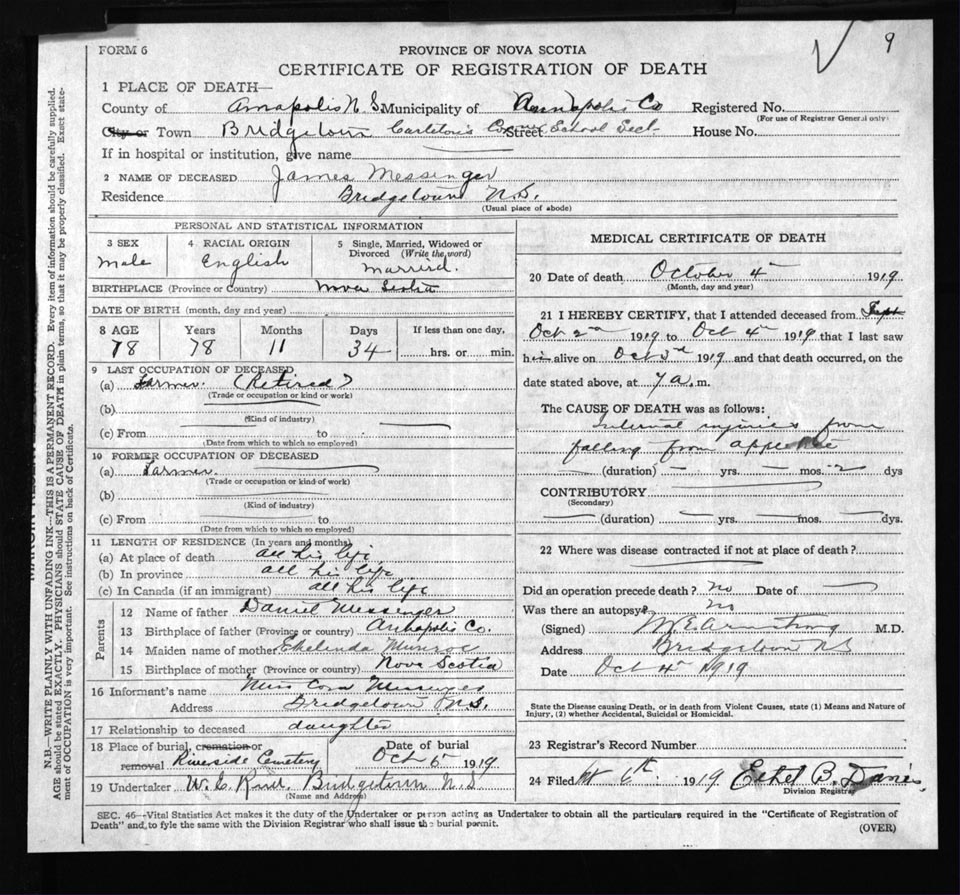 9
FORM 6
PROVINCE OF NOVA SCOTIA
CERTIFICATE OF REGISTRATION OF DEATH
1 PLACE OF DEATH—
County of Annapolis N.S. Municipality of Annapolis Co Registered No.
(For use of Registrar General only)
City or Town Bridgetown Carleton's Corner Street School Sect. House No.
If in hospital or institution, give name
2 NAME OF DECEASED James Messenger
Residence Bridgetown N.S.
(Usual place of abode)
PERSONAL AND STATISTICAL INFORMATION
3 SEX
male
4 RACIAL ORIGIN
English
5 Single, Married, Widowed or
Divorced (Write the word)
married.
BIRTHPLACE (Province or Country) Nova Scotia
DATE OF BIRTH (month, day and year)
8 AGE Years Months Days If less than one day,
78 78 11 34 hrs. or min.
9 LAST OCCUPATION OF DECEASED
(a) Farmer. (Retired)
(Trade or occupation or kind or work)
(b)
(Kind of industry)
(c) From to
(Date from which to which so employed)
10 FORMER OCCUPATION OF DECEASED
(a) Farmer.
(Trade or occupation or kind of work)
(b)
(Kind of industry)
(c) From to
(Date from which to which so employed)
11 LENGTH OF RESIDENCE (In years and months)
(a) At place of death all his life
(b) In province all his life
(c) In Canada (if an immigrant) all his life
Parents
12 Name of father Daniel Messenger
13 Birthplace of father (Province or country) Annapolis Co.
14 Maiden name of mother Munroe
15 Birthplace of mother (Province or country) Nova Scotia
16 Informant's name Miss Cora Messenger
Address Bridgetown N.S.
17 Relationship to deceased daughter
18 Place of burial, cremation or
removal Riverside Cemetery
Date of burial
Oct 6 1919
19 Undertaker W. E. Bridgetown N.S
(Name and Address)
MEDICAL CERTIFICATE OF DEATH
20 Date of death October 4th 1919
(Month, day and year)
21 I HEREBY CERTIFY, that I attended deceased from Sept
Oct 2nd 1919 to Oct 4th 1919 that I last saw
him alive on Oct 3rd 1919 and that death occurred, on the
date stated above, at 7 a. m.
The CAUSE OF DEATH was as follows:
Internal injuries from
falling from apple tree
(duration) yrs. mos. 2 dys
CONTRIBUTORY
(Secondary)
(duration) yrs. mos. dys.
22 Where was disease contracted if not at place of death?
Did an operation precede death? no Date of
Was there an autopsy? no
(Signed) M.E. Armstrong M.D.
Address Bridgetown NS
Date Oct 4th 1919
State the Disease causing Death, or in death from Violent Causes, state (1) Means and Nature of
Injury, (2) whether Accidental, Suicidal or Homicidal.
23 Registrar's Record Number
24 Filed 6th 1919 Ethel B. Davies,
Division Registrar
SEC. 46—Vital Statistics Act makes it the duty of the Undertaker or person acting as Undertaker to obtain all the particulars required in the "Certificate of Registration of
Death" and to fyle the same with the Division Registrar who shall issue the burial permit.
(OVER)
N.B.—WRITE PLAINLY WITH UNFADING INK—THIS IS A PERMANENT RECORD. Every item of information should be carefully supplied.
AGE should be stated EXACTLY. PHYSICIANS should STATE CAUSE OF DEATH in plain terms, so that it may be properly classified. Exact state-
ment of OCCUPATION is very important. See instructions on back of Certificate.